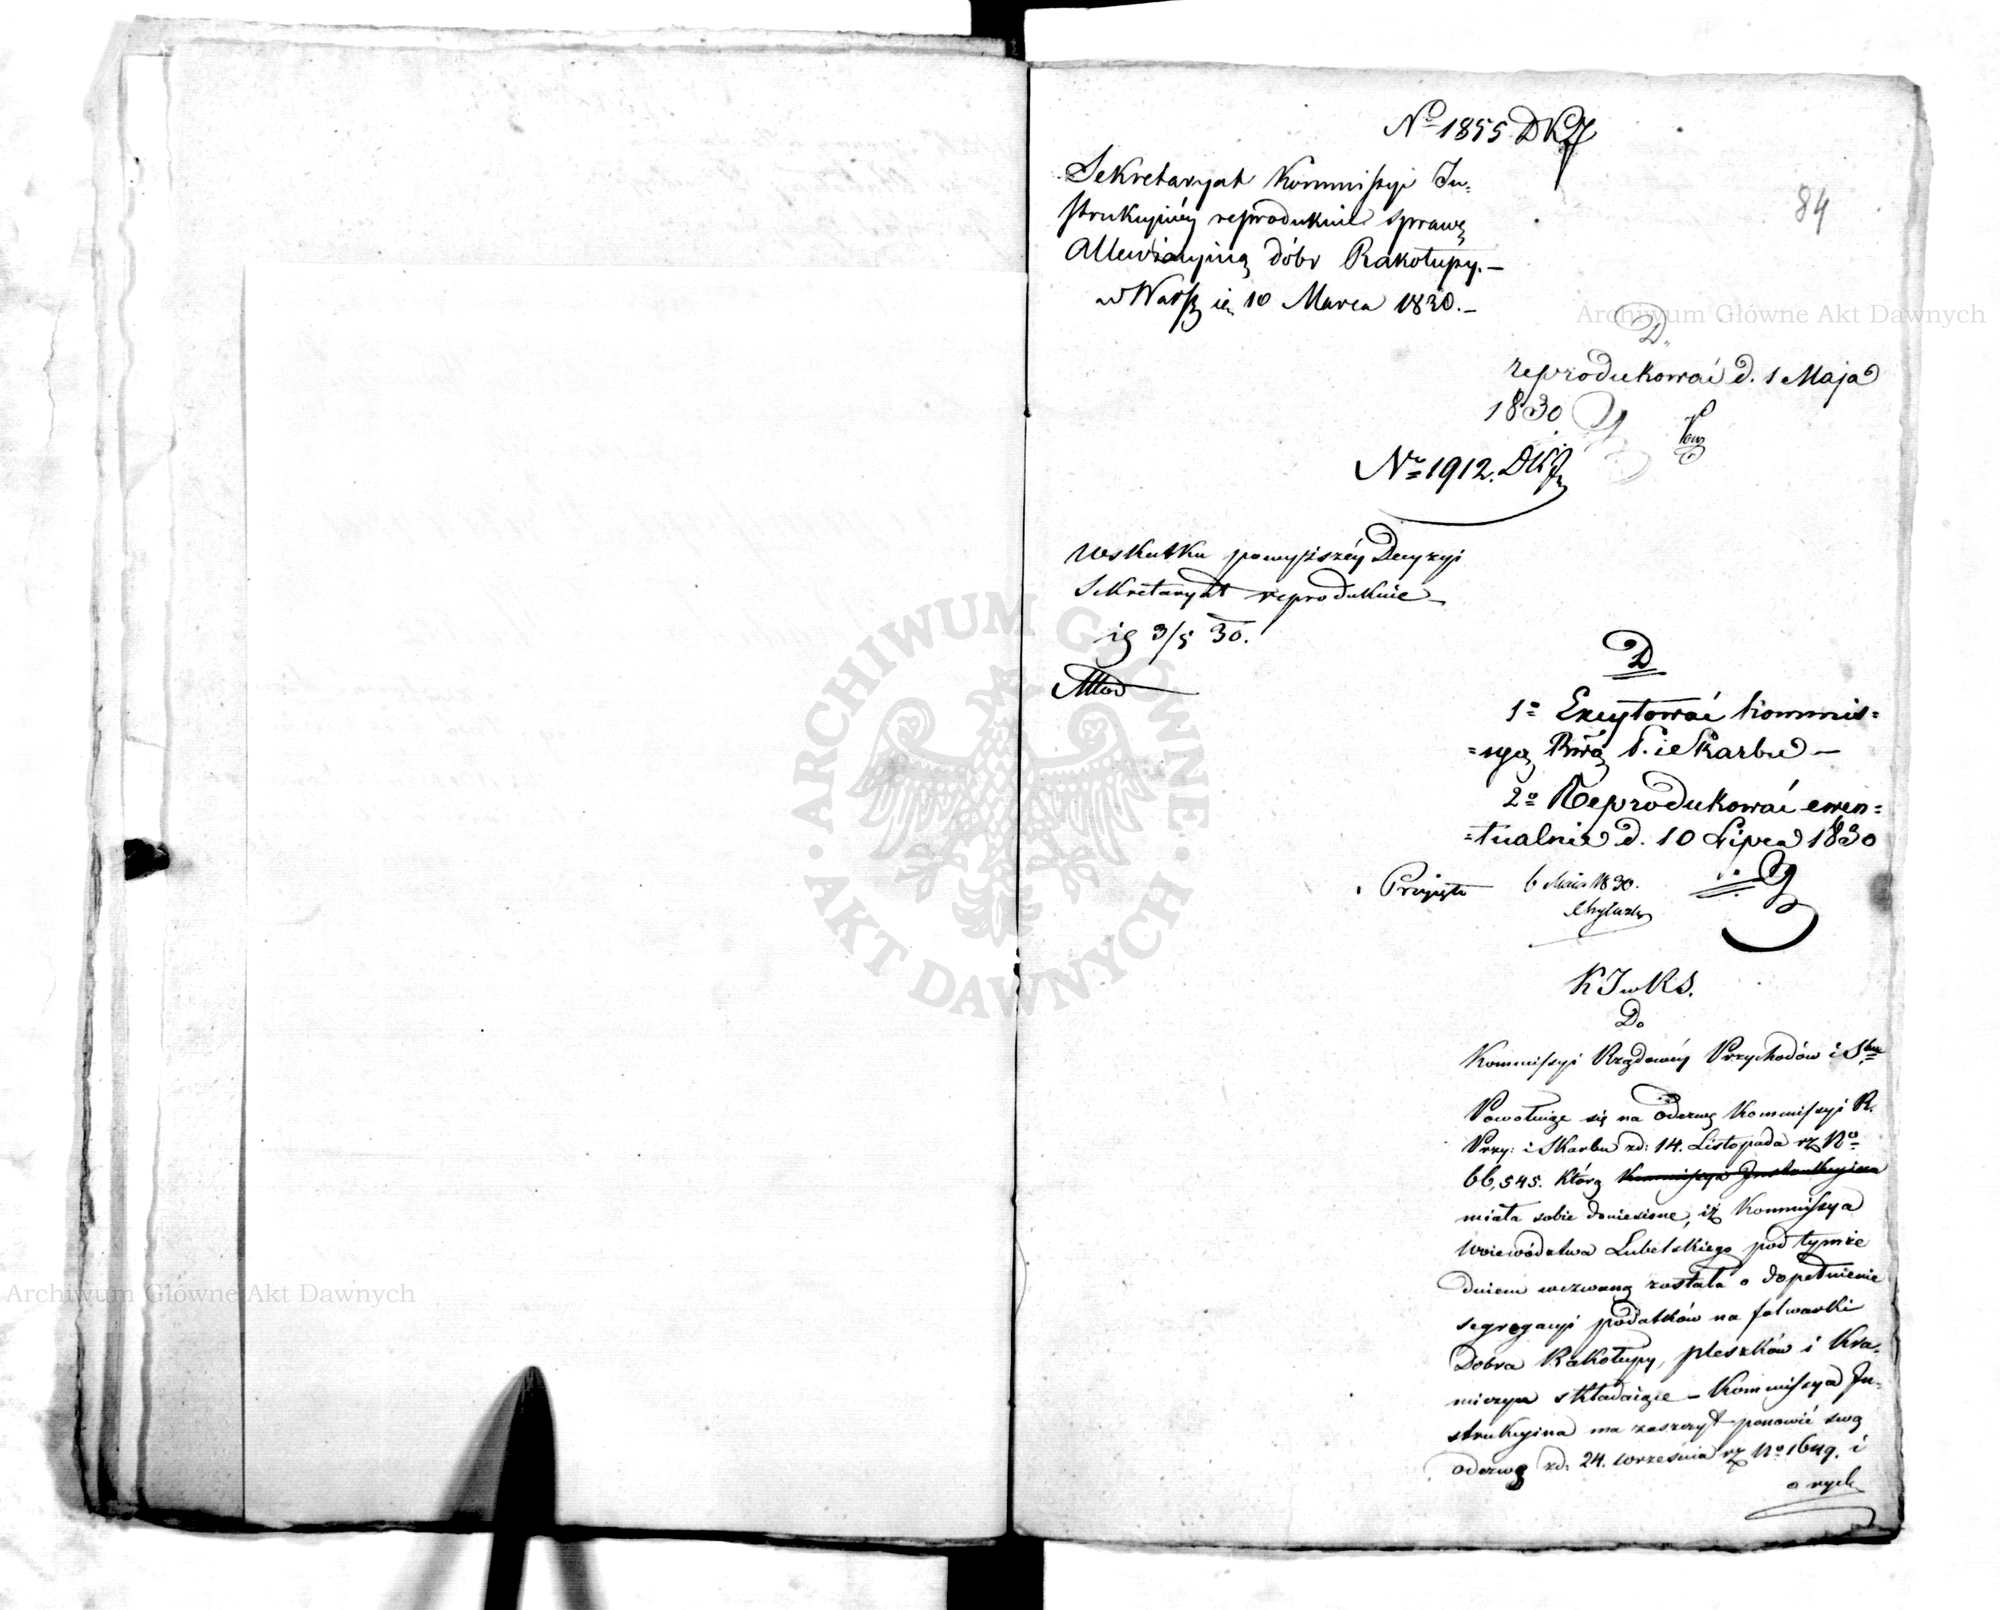 No 1855 DKJ
84
Sekretaryat Kommissyi In=
strukcyinéy reprodukuie sprawę
Allewiacyiną dóbr Rakołupy.—
w Warsz 10 Marca 1830.—
D.
reprodukować d. 1 Maja
1830
Nr 1912. DKJ
Wskutku powyższéy Decyzyi
Sekretaryat reprodukuie
3/5 30.
D
1o Excytować Kommis=
=syą Rwą P. i Skarbu —
2o Reprodukować ewen=
=tualnie d. 10 Lipca 1830
Przyięto 6 Maia 1830.
K J w K S.
Do
Kommissyi Rządowéy Przychodów i Sbu
Powołuiąc się na Odezwę Kommissyi R.
Przy: i Skarbu zd: 14. Listopada rz No
66,545. którą Kommissya Instrukcyina
miała sobie doniesione, iż Kommissya
Woiewództwa Lubelskiego pod tymże
dniem wezwaną została o dopełnienie
segregacyi podatków na folwarki
Dobra Rakołupy, Pleszków i Kra-
niczyn składaiące — Kommissya In-
strukcyina ma zaszczyt ponowić swą
odezwę zd: 24. Września rz No 1649. i
o rych
Archiwum Główne Akt Dawnych
Archiwum Główne Akt Dawnych
ARCHIWUM GŁÓWNE · AKT DAWNYCH ·